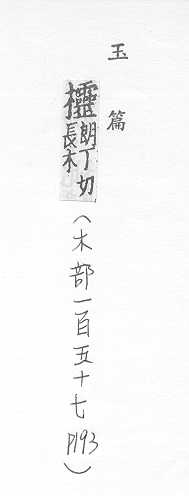 玉篇
朗丁切
長木
(木部一百五十七 P193)